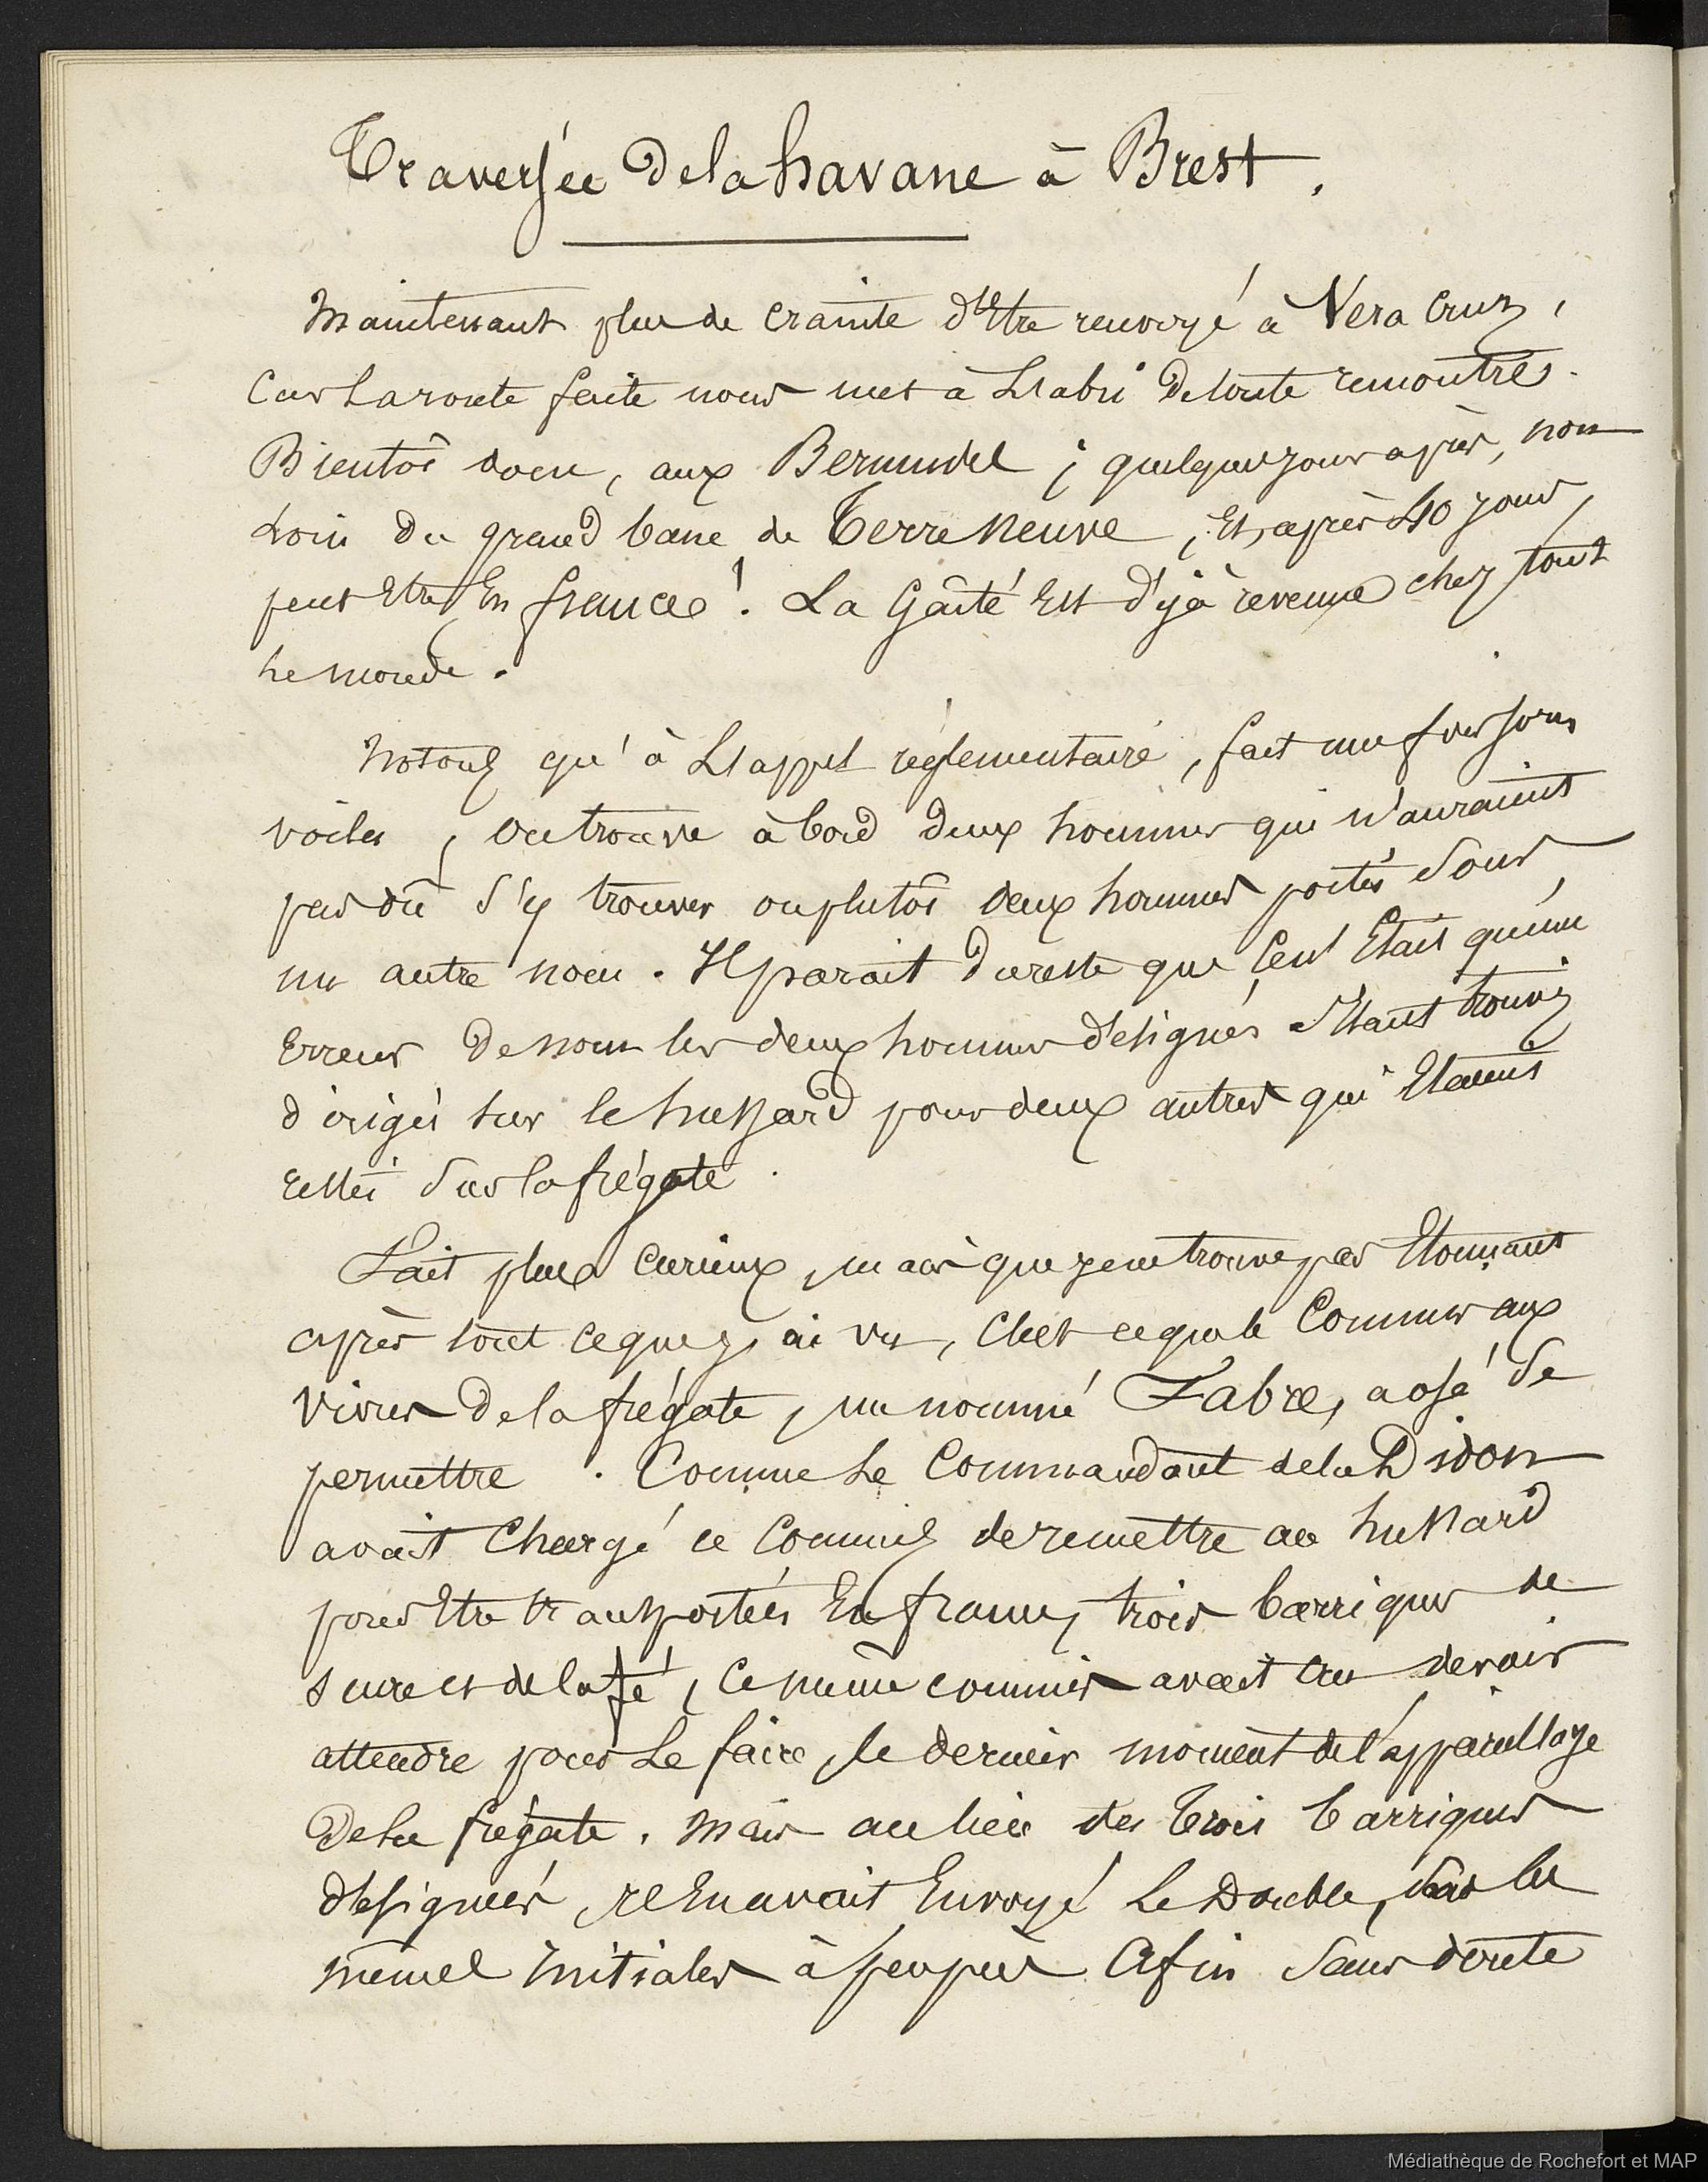 Traversée de la havane à Brest.
Maintenant plus de crainte d'Etre renvoyé à Vera Cruz,
Car La route faite nous met à L'abri de toute remontrés.
Bientôt donc, aux Bermudes ; quelques jours après, non
Loin du grand banc de Terre Neuve, Et, après 40 jours,
peut Etre En france ! La Gaîté Est déjà revenue chez tout
Le monde.
Notons qu'à L'appel réglementaire, fait une fois sous
voiles, on trouve à bord deux hommes qui n'auraient
pas dû s'y trouver ou plutôt deux hommes portés sous
un autre nom. Il parait du reste que ce n'Etait qu'une
Erreur de nom les deux hommes désignés s'Etant trouvés
dirigés sur le hussard pour deux autres qui Etaient
restés sur la frégate.
Fait plus curieux, mais que je ne trouve pas Etonnant
après tout ce que j'ai vu, C'est ce que le Commis aux
vivres de la frégate, un nommé Fabre, a osé se
permettre. Comme Le Commandant de la Didon
avait Chargé ce Commis de remettre au hussard
pour Etre transportées En france, trois barriques de
sucre et de café, Ce même commis avait cru devoir
attendre pour Le faire, le dernier moment de l'appareillage
De la frégate. Mais au lieu des trois barriques
désignées, il En avait Envoyé Le Double, sous les
mêmes initiales à peu près Afin sans doute
Médiathèque de Rochefort et MAP